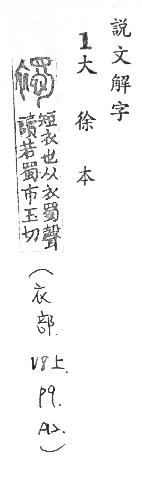 説文解字
1大徐本
短衣也从衣蜀聲
讀若蜀市玉切
(衣部.V8上.P9.A2.)